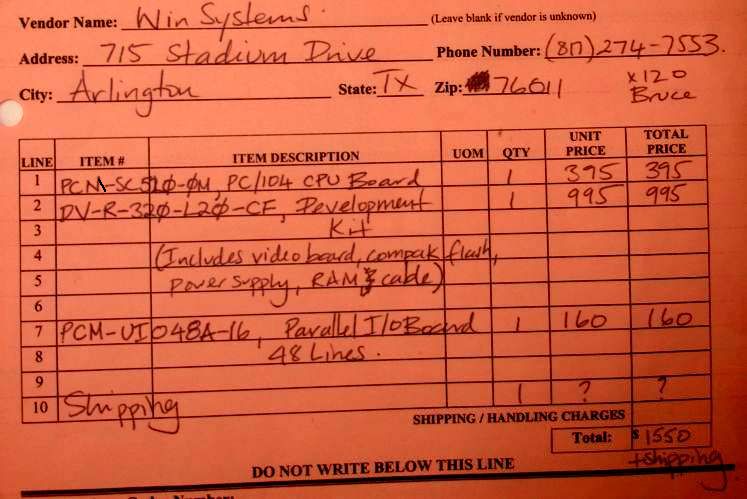 Vendor Name: Win Systems. (Leave blank if vendor is unknown)
Address: 715 Stadium Drive Phone Number: (817) 274-7553.
City: Arlington State: TX Zip: 76011 x120
Bruce
LINE ITEM # ITEM DESCRIPTION UOM QTY UNIT PRICE TOTAL PRICE
1 PCM-SC520-0M, PC/104 CPU Board 1 395 395
2 DV-R-320-L20-CF, Development 1 995 995
3 Kit
4 (Includes video board, compak flash,
5 power supply, RAM & cable)
6
7 PCM-UIO48A-16, Parallel I/O Board 1 160 160
8 48 Lines.
9
10 Shipping 1 ? ?
SHIPPING / HANDLING CHARGES
Total: $ 1550
+shipping
DO NOT WRITE BELOW THIS LINE